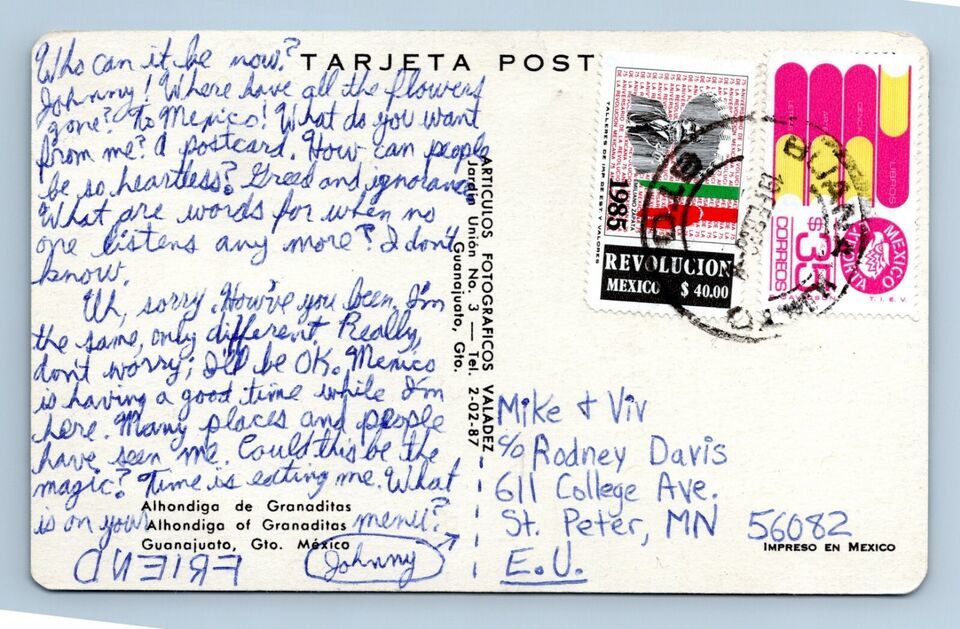 TARJETA POST
Who can it be now?
Johnny! Where have all the flowers
gone? To Mexico! What do you want
from me? A postcard. How can people
be so heartless? Greed and ignorance
What are words for when no
one listens any more? I don't
know.
Uh, sorry. How've you been. I'm
the same, only different. Really,
don't worry; I'll be OK. Mexico
is having a good time while I'm
here. Many places and people
have seen me. Could this be the
magic? Time is eating me. What
is on your menu?
Johnny
FRIEND
Alhondiga de Granaditas
Alhondiga of Granaditas
Guanajuato, Gto. México
ARTICULOS FOTOGRAFICOS VALADEZ
Jardín Unión No. 3 — Tel. 2-02-87
Guanajuato, Gto.
TALLERES DE IMP. DE EST. Y VALORES
75 ANIVERSARIO DE LA REVOLUCION MEXICANA
EMILIANO ZAPATA
1985
REVOLUCION
MEXICO $ 40.00
LIBROS
MEXICO
EXPORTA
$35
CORREOS
T.I.E.V.
Mike & Viv
c/o Rodney Davis
611 College Ave.
St. Peter, MN 56082
E.U.
IMPRESO EN MEXICO